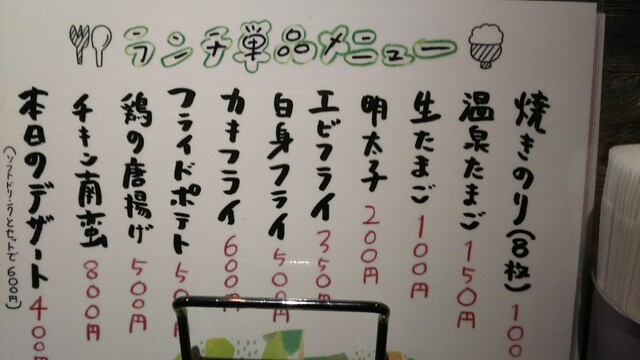 ランチ単品メニュー
焼きのり(8枚) 100
温泉たまご 150円
生たまご 100円
明太子 200円
エビフライ 350円
白身フライ 500円
カキフライ 600円
フライドポテト 50
鶏の唐揚げ 500円
チキン南蛮 800円
本日のデザート 400円
(ソフトドリンクとセットで600円)